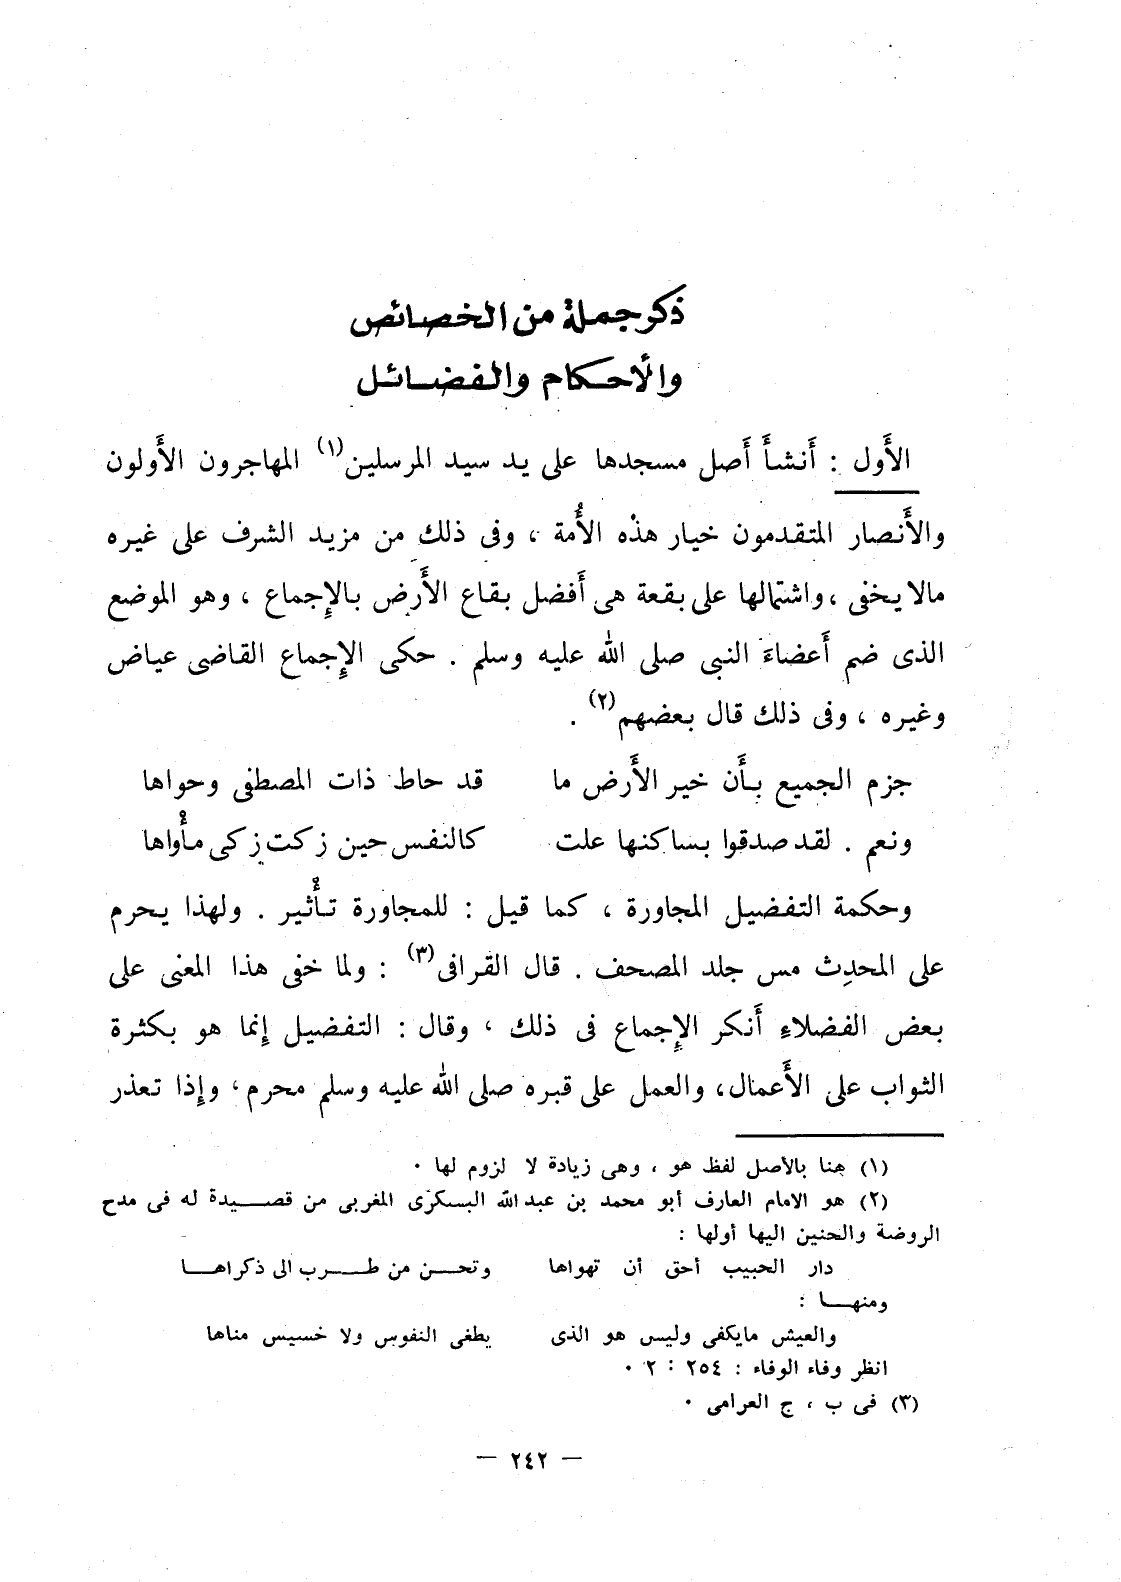 ذكر جملة من الخصائص
والأحكام والفضائل
الأَول : أَنشأَ أَصل مسجدها على يد سيد المرسلين(١) المهاجرون الأَولون
والأَنصار المتقدمون خيار هذه الأُمة ، وفى ذلك من مزيد الشرف على غيره
مالا يخفى ، واشتمالها على بقعة هى أَفضل بقاع الأَرض بالإِجماع ، وهو الموضع
الذى ضم أَعضاءَ النبى صلى الله عليه وسلم . حكى الإِجماع القاضى عياض
وغيره ، وفى ذلك قال بعضهم(٢) .
جزم الجميع بأَن خير الأَرض ما قد حاط ذات المصطفى وحواها
ونعم . لقد صدقوا بساكنها علت كالنفس حين زكت زكى مأْواها
وحكمة التفضيل المجاورة ، كما قيل : للمجاورة تأْثير . ولهذا يحرم
على المحدِث مس جلد المصحف . قال القرافى(٣) : ولما خفى هذا المعنى على
بعض الفضلاءِ أَنكر الإِجماع فى ذلك ، وقال : التفضيل إِنما هو بكثرة
الثواب على الأَعمال، والعمل على قبره صلى الله عليه وسلم محرم ، وإِذا تعذر
(١) هنا بالأصل لفظ هو ، وهى زيادة لا لزوم لها .
(٢) هو الامام العارف أبو محمد بن عبد الله البسكرى المغربى من قصيدة له فى مدح
الروضة والحنين اليها أولها :
دار الحبيب أحق أن تهواها وتحن من طرب الى ذكراها
ومنها :
والعيش مايكفى وليس هو الذى يطغى النفوس ولا خسيس مناها
انظر وفاء الوفاء : ٢٥٤ : ٢ .
(٣) فى ب ، ج العرامى .
— ٢٤٢ —